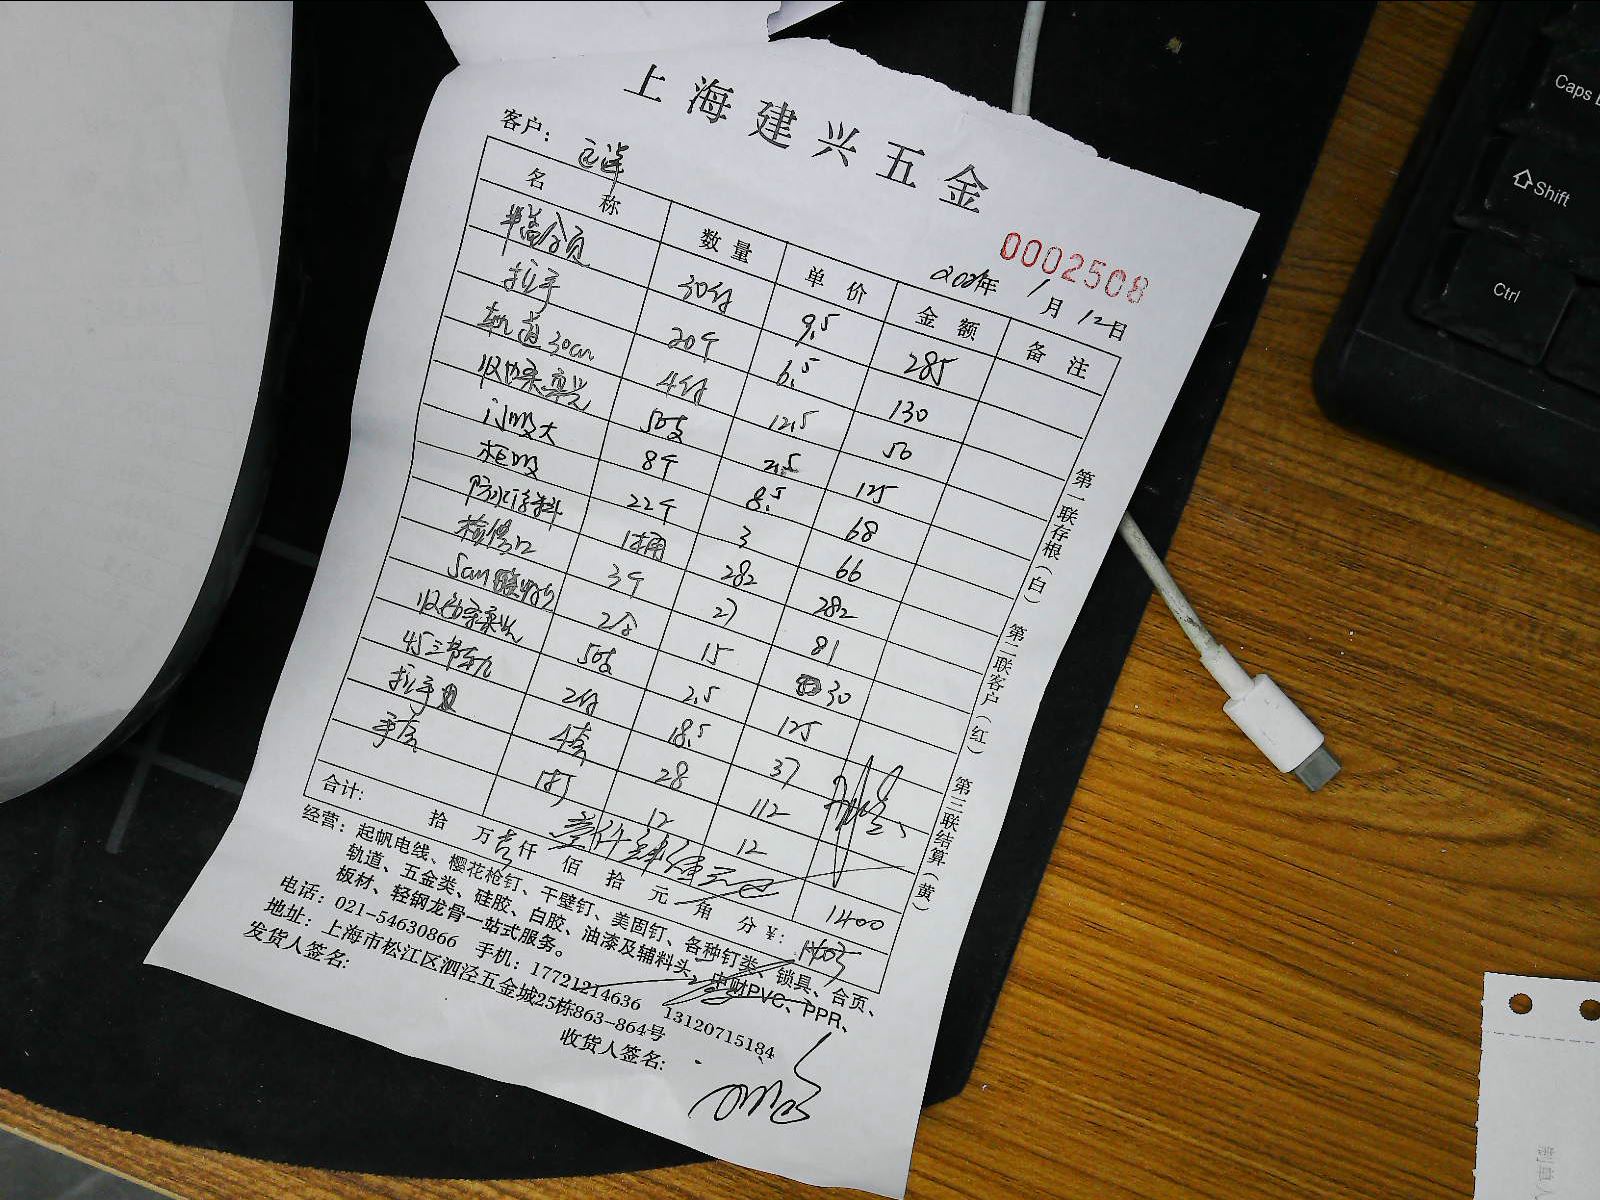 上海建兴五金
0002508
客户：
年 1月 12日
名称 数量 单价 金额 备注
半盖合页 30付 9.5 285
拉手 20个 6.5 130
轨道30cm 4付 12.5 50
50支 2.5 125
门吸大 8个 8.5 68
柜吸 22个 3 66
防水涂料 1桶 282 282
检修口 3个 27 81
5cm 2个 15 30
50支 2.5 125
45三节轨 2付 18.5 37
拉手 4套 28 112
手套 1打 12 12
1400
合计： 拾 万 壹仟 佰 拾 元 角 分 ¥: 1403
第一联存根（白） 第二联客户（红） 第三联结算（黄）
经营：起帆电线、樱花枪钉、干壁钉、美固钉、各种钉类、锁具、合页、
轨道、五金类、硅胶、白胶、油漆及辅料头、中财PVC、PPR、
板材、轻钢龙骨一站式服务。
电话：021-54630866 手机：17721214636 13120715184
地址：上海市松江区泗泾五金城25栋863-864号
发货人签名: 收货人签名:
Caps
Shift
Ctrl
制单